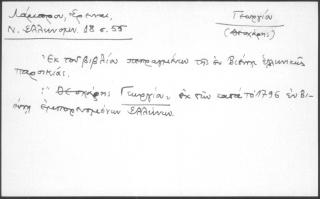 Λάμπρου, Σπυρ.
Γεωργίου
Ν. Ελληνομν. 18 σ. 55
(Θεοχάρης)
Ἐκ τοῦ βιβλίου πεπραγμένων τῆς ἐν Βιέννῃ ἑλληνικῆς
παροικίας.
:" Θεοχάρης Γεωργίου, ἐκ τῶν κατὰ τὸ 1796 ἐν Βι-
έννῃ ἐμπορευομένων Ἑλλήνων